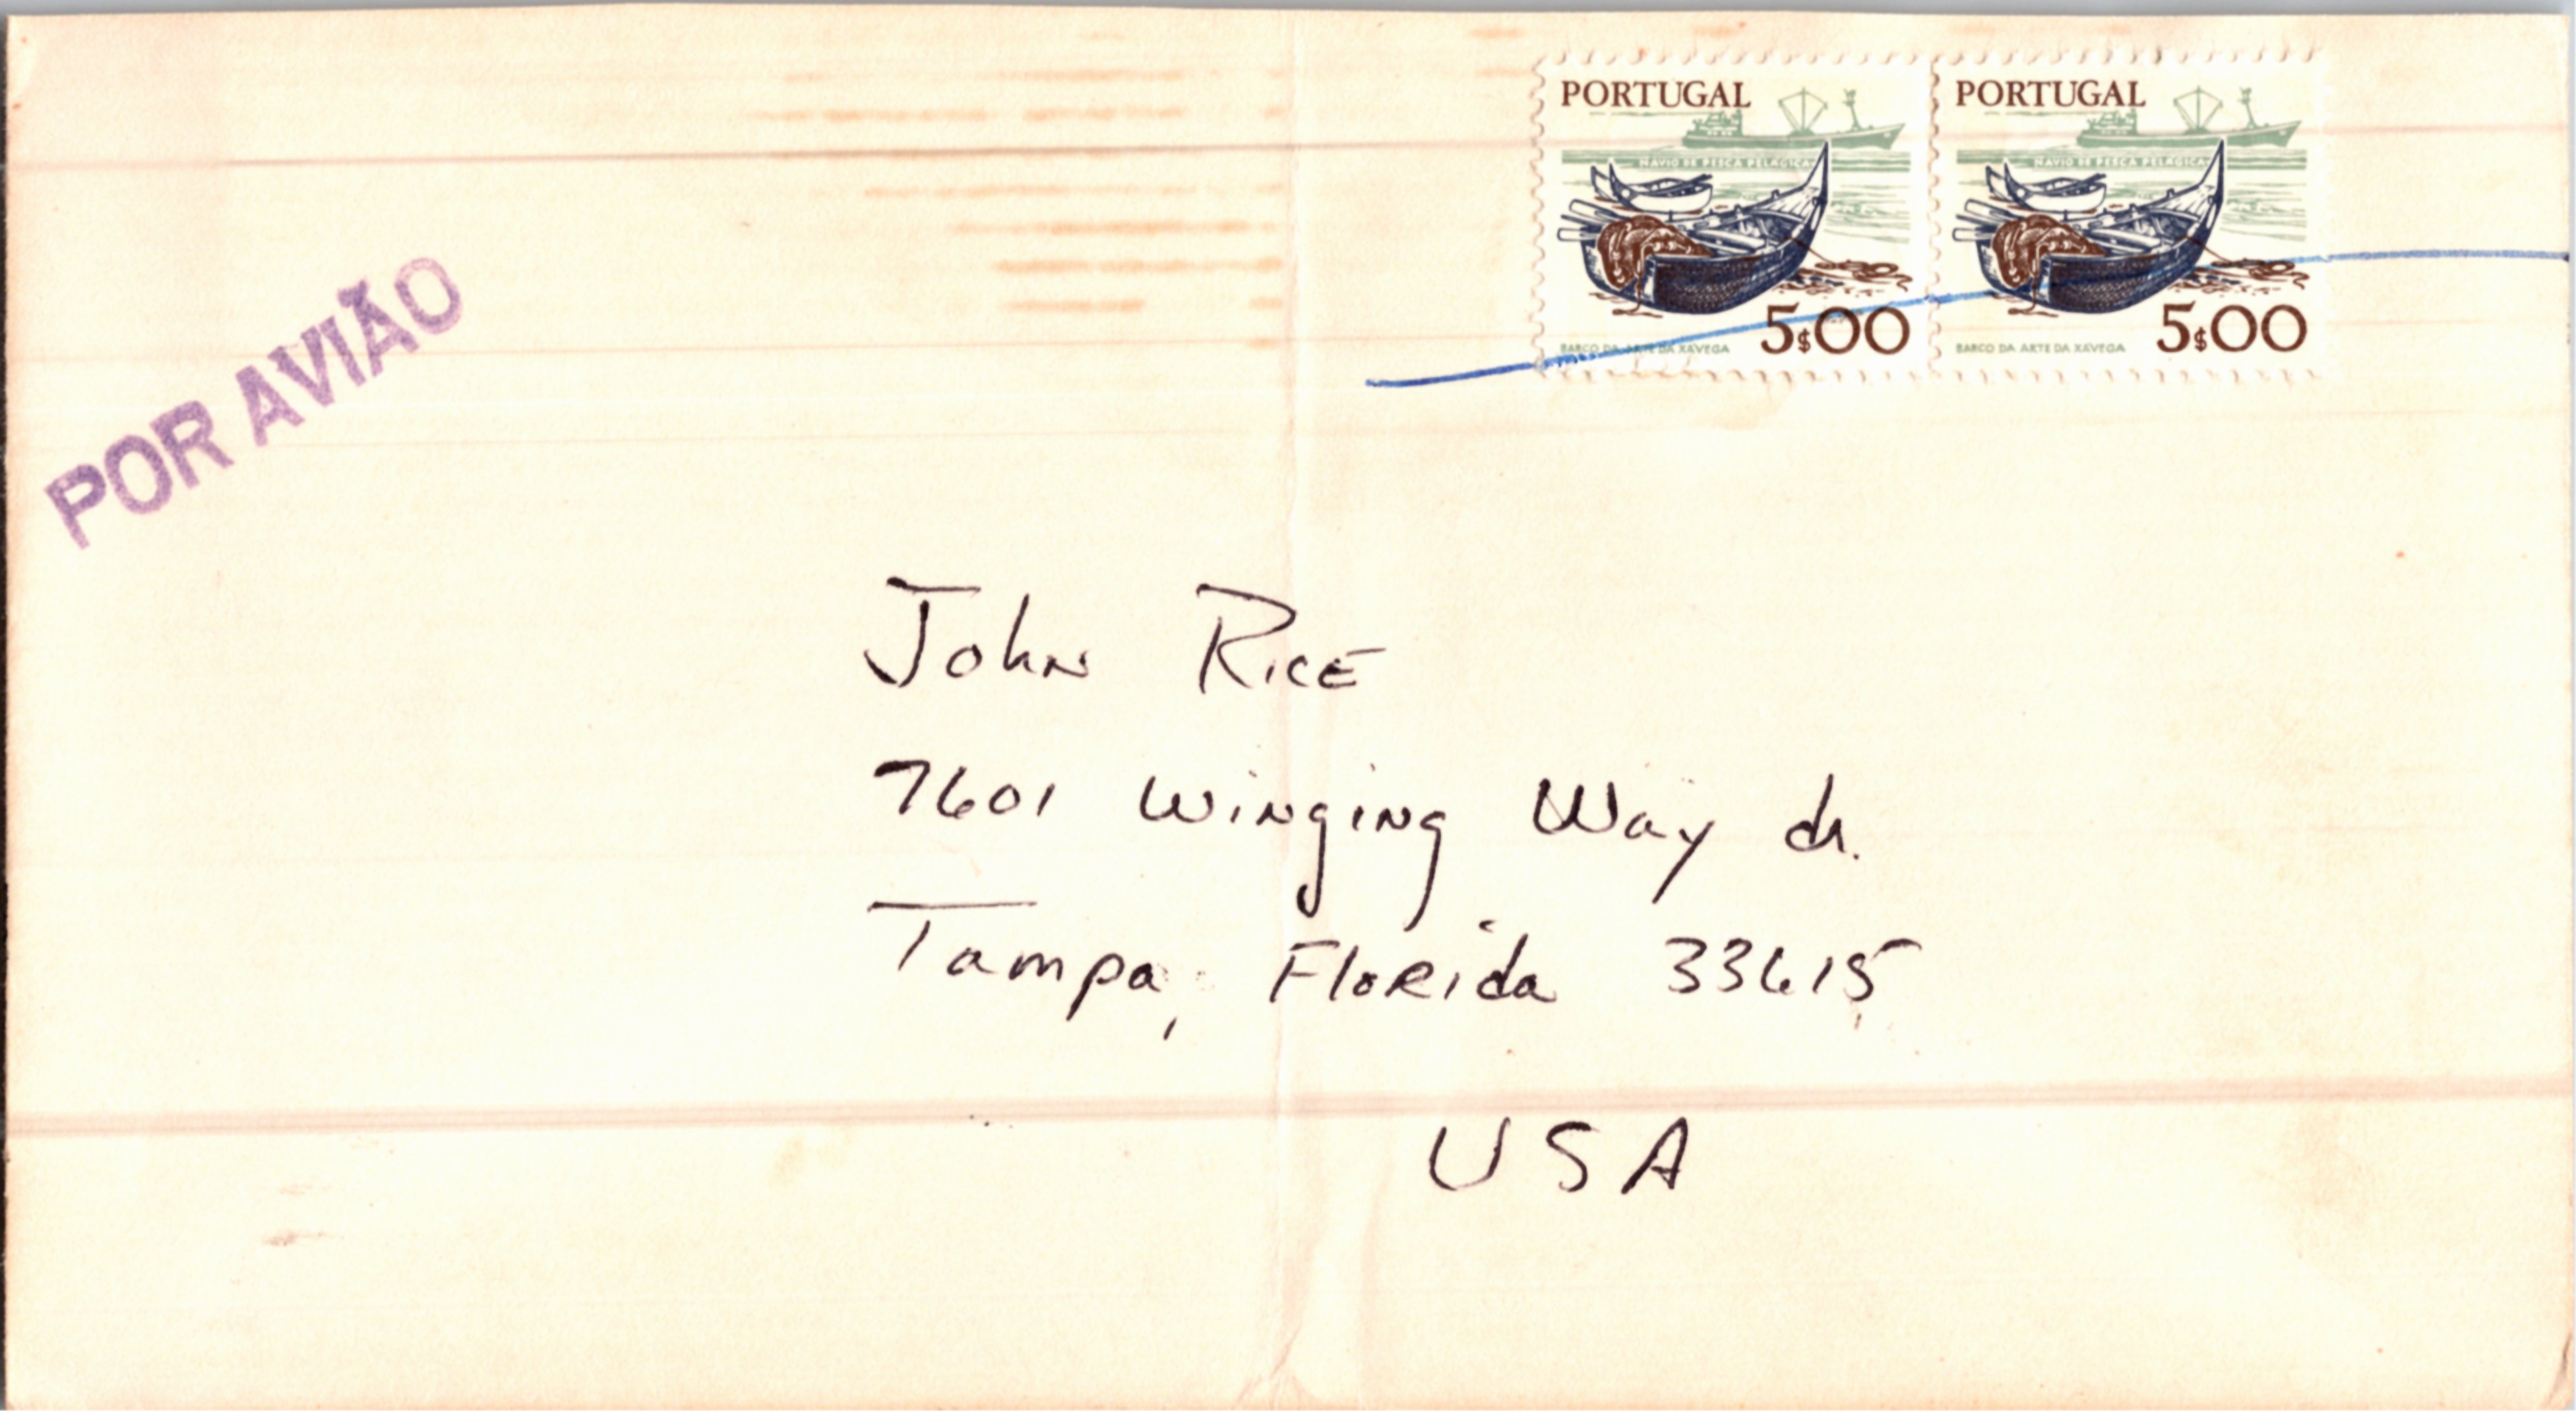 PORTUGAL
NAVIO DE PESCA PELÁGICA
5$00
BARCO DA ARTE DA XÁVEGA
PORTUGAL
NAVIO DE PESCA PELÁGICA
5$00
BARCO DA ARTE DA XÁVEGA
POR AVIÃO
John RICE
7601 Winging Way dr.
Tampa, Florida 33615
USA